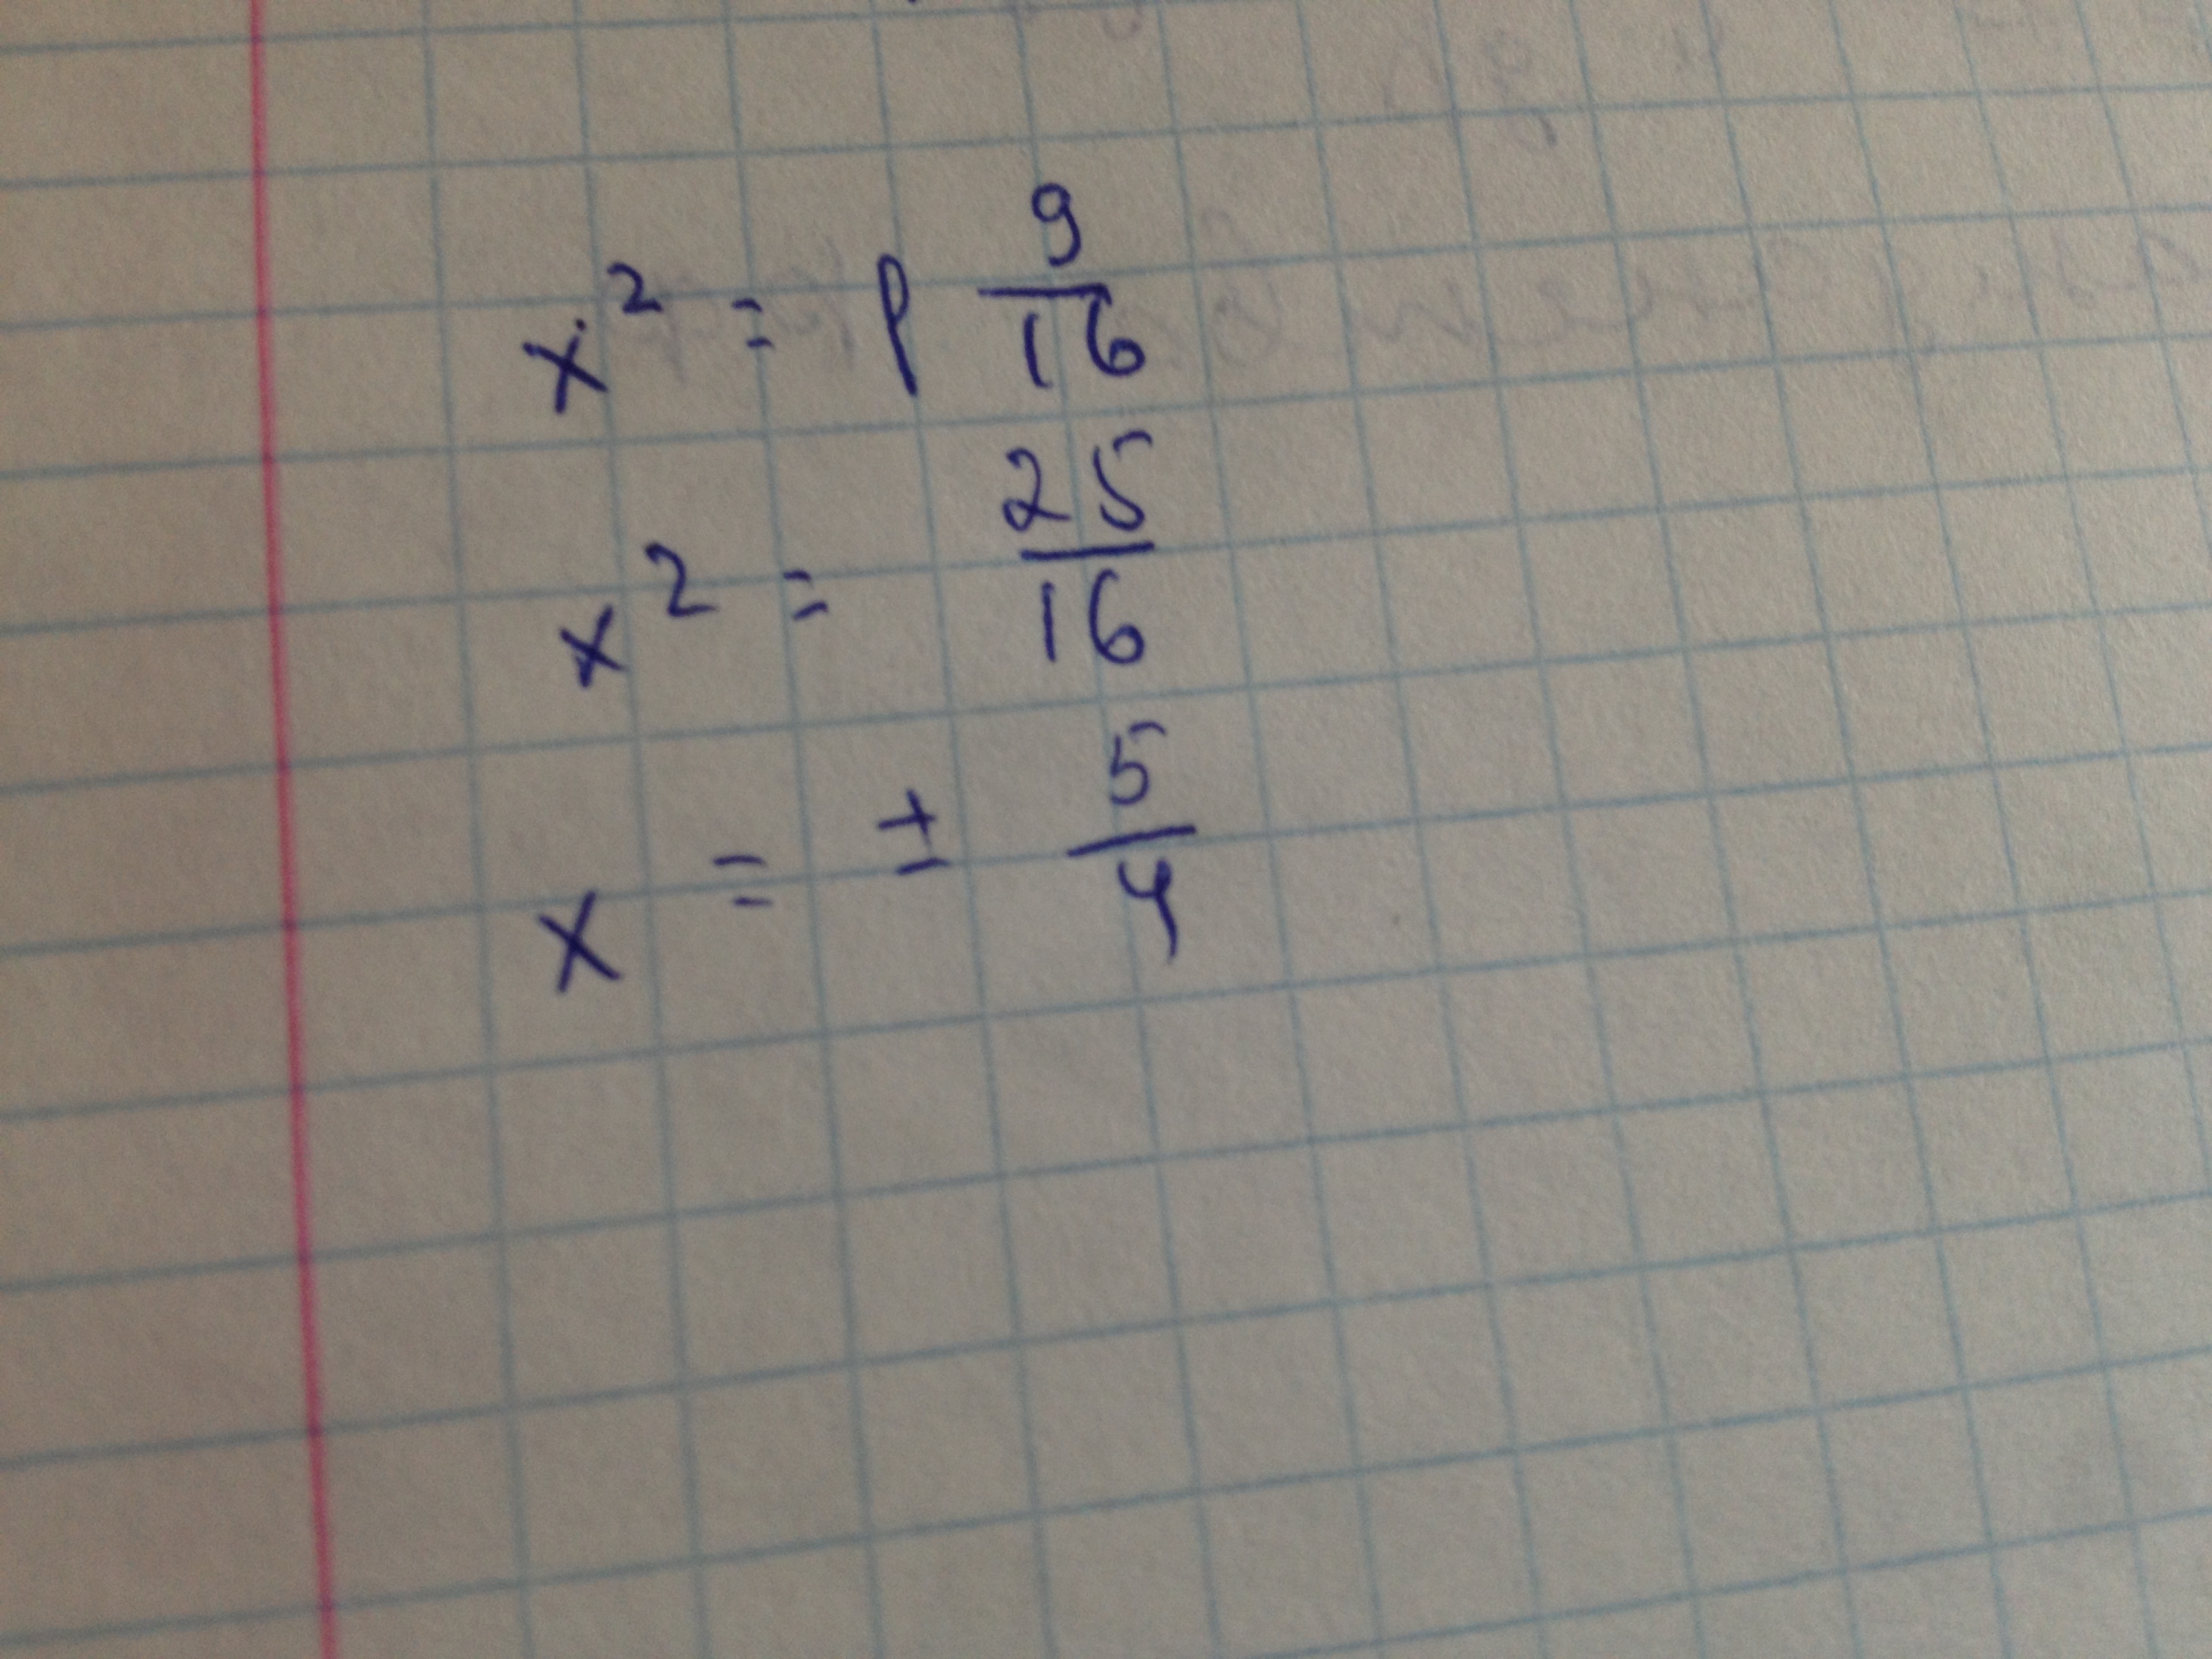 x² = 1 9/16
x² = 25/16
x = ± 5/4